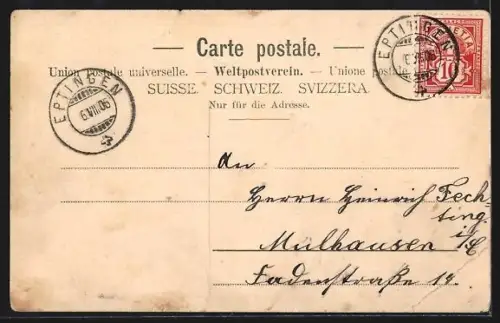 — Carte postale. —
Union postale universelle. — Weltpostverein. — Unione postale
SUISSE. SCHWEIZ. SVIZZERA.
Nur für die Adresse.
EPTINGEN
6.VIII.06
EPTINGEN
HELVETIA
10
An
Herrn Heinrich Fech-
ting.
Mülhausen i/E
Fadenstraße 14.